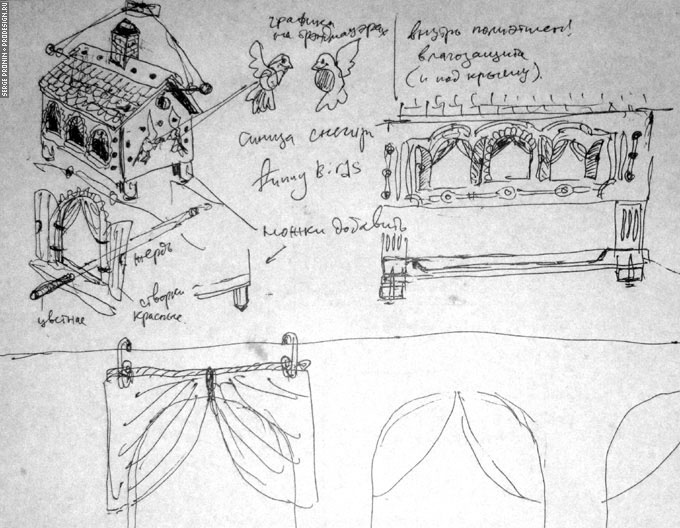 SERGE PRONIN • PRODESIGN.RU
графика
на брэндмауэрах
внутрь полиэтилен!
влагозащита
(и под крышу).
синица снегирь
funny Birds
ножки добавить
жердь
створки
красные.
цветная